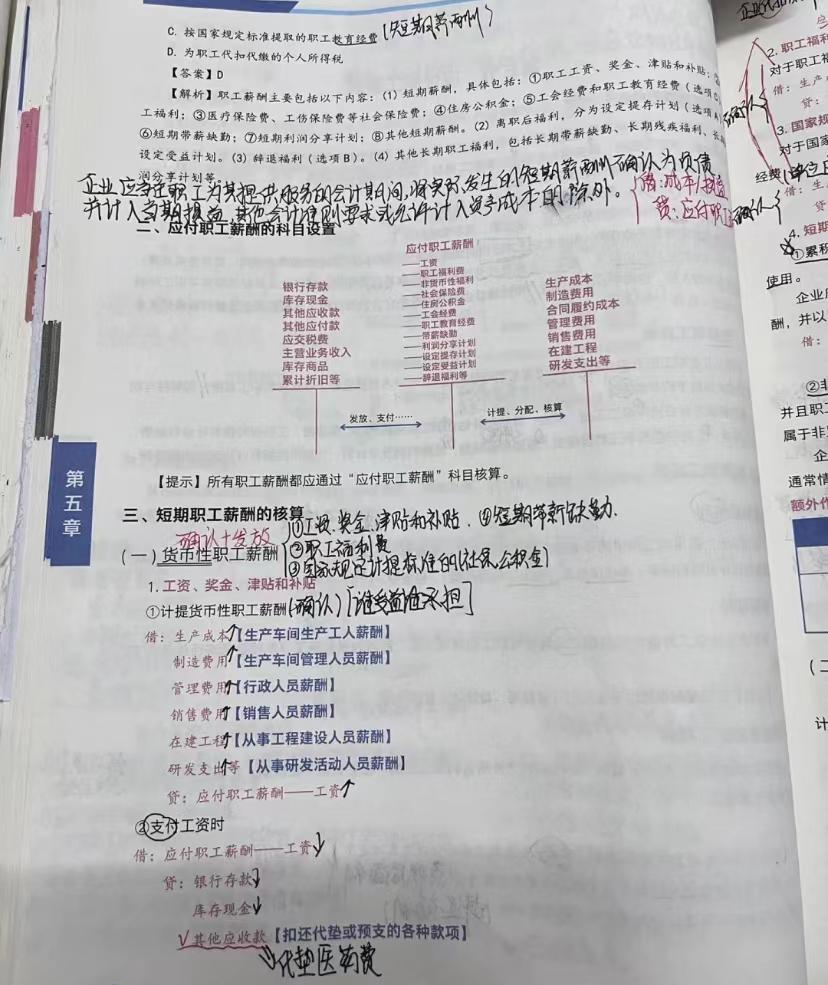 C. 按国家规定标准提取的职工教育经费 (短期薪酬)
D. 为职工代扣代缴的个人所得税
【答案】D
【解析】职工薪酬主要包括以下内容：(1) 短期薪酬，具体包括：①职工工资、奖金、津贴和补贴；
工福利；③医疗保险费、工伤保险费等社会保险费；④住房公积金；⑤工会经费和职工教育经费（选项
⑥短期带薪缺勤；⑦短期利润分享计划；⑧其他短期薪酬。(2) 离职后福利，分为设定提存计划（选项
设定受益计划。(3) 辞退福利（选项 B）。(4) 其他长期职工福利，包括长期带薪缺勤、长期残疾福利、
润分享计划等。
企业应当在职工为其提供服务的会计期间，将实际发生的短期薪酬确认为负债
并计入当期损益，其他会计准则要求或允许计入资产成本的除外。
借：成本/
贷：应付职
二、应付职工薪酬的科目设置
应付职工薪酬
——工资
——职工福利费
——非货币性福利
——社会保险费
——住房公积金
——工会经费
——职工教育经费
——带薪缺勤
——利润分享计划
——设定提存计划
——设定受益计划
——辞退福利等
银行存款
库存现金
其他应收款
其他应付款
应交税费
主营业务收入
库存商品
累计折旧等
生产成本
制造费用
合同履约成本
管理费用
销售费用
在建工程
研发支出等
发放、支付……
计提、分配、核算
【提示】所有职工薪酬都应通过“应付职工薪酬”科目核算。
第五章
三、短期职工薪酬的核算
确认+发放
①工资、奖金、津贴和补贴. ④短期带薪缺勤.
(一) 货币性职工薪酬
②职工福利费
③国家规定计提标准的(社保,公积金)
1. 工资、奖金、津贴和补贴
①计提货币性职工薪酬 (确认) [谁受益谁承担]
借：生产成本↑【生产车间生产工人薪酬】
制造费用↑【生产车间管理人员薪酬】
管理费用↑【行政人员薪酬】
销售费用↑【销售人员薪酬】
在建工程↑【从事工程建设人员薪酬】
研发支出等↑【从事研发活动人员薪酬】
贷：应付职工薪酬——工资↑
②支付工资时
借：应付职工薪酬——工资↓
贷：银行存款↓
库存现金↓
√其他应收款【扣还代垫或预支的各种款项】
代垫医药费
2. 职工福利
对于职工福
借：生产
贷：
3. 国家规
对于国家
经费
借：生
贷：
4. 短期
①累积
使用。
企业
酬，并以
借：
②非
并且职工
属于非
企
通常情
额外作
(二
计